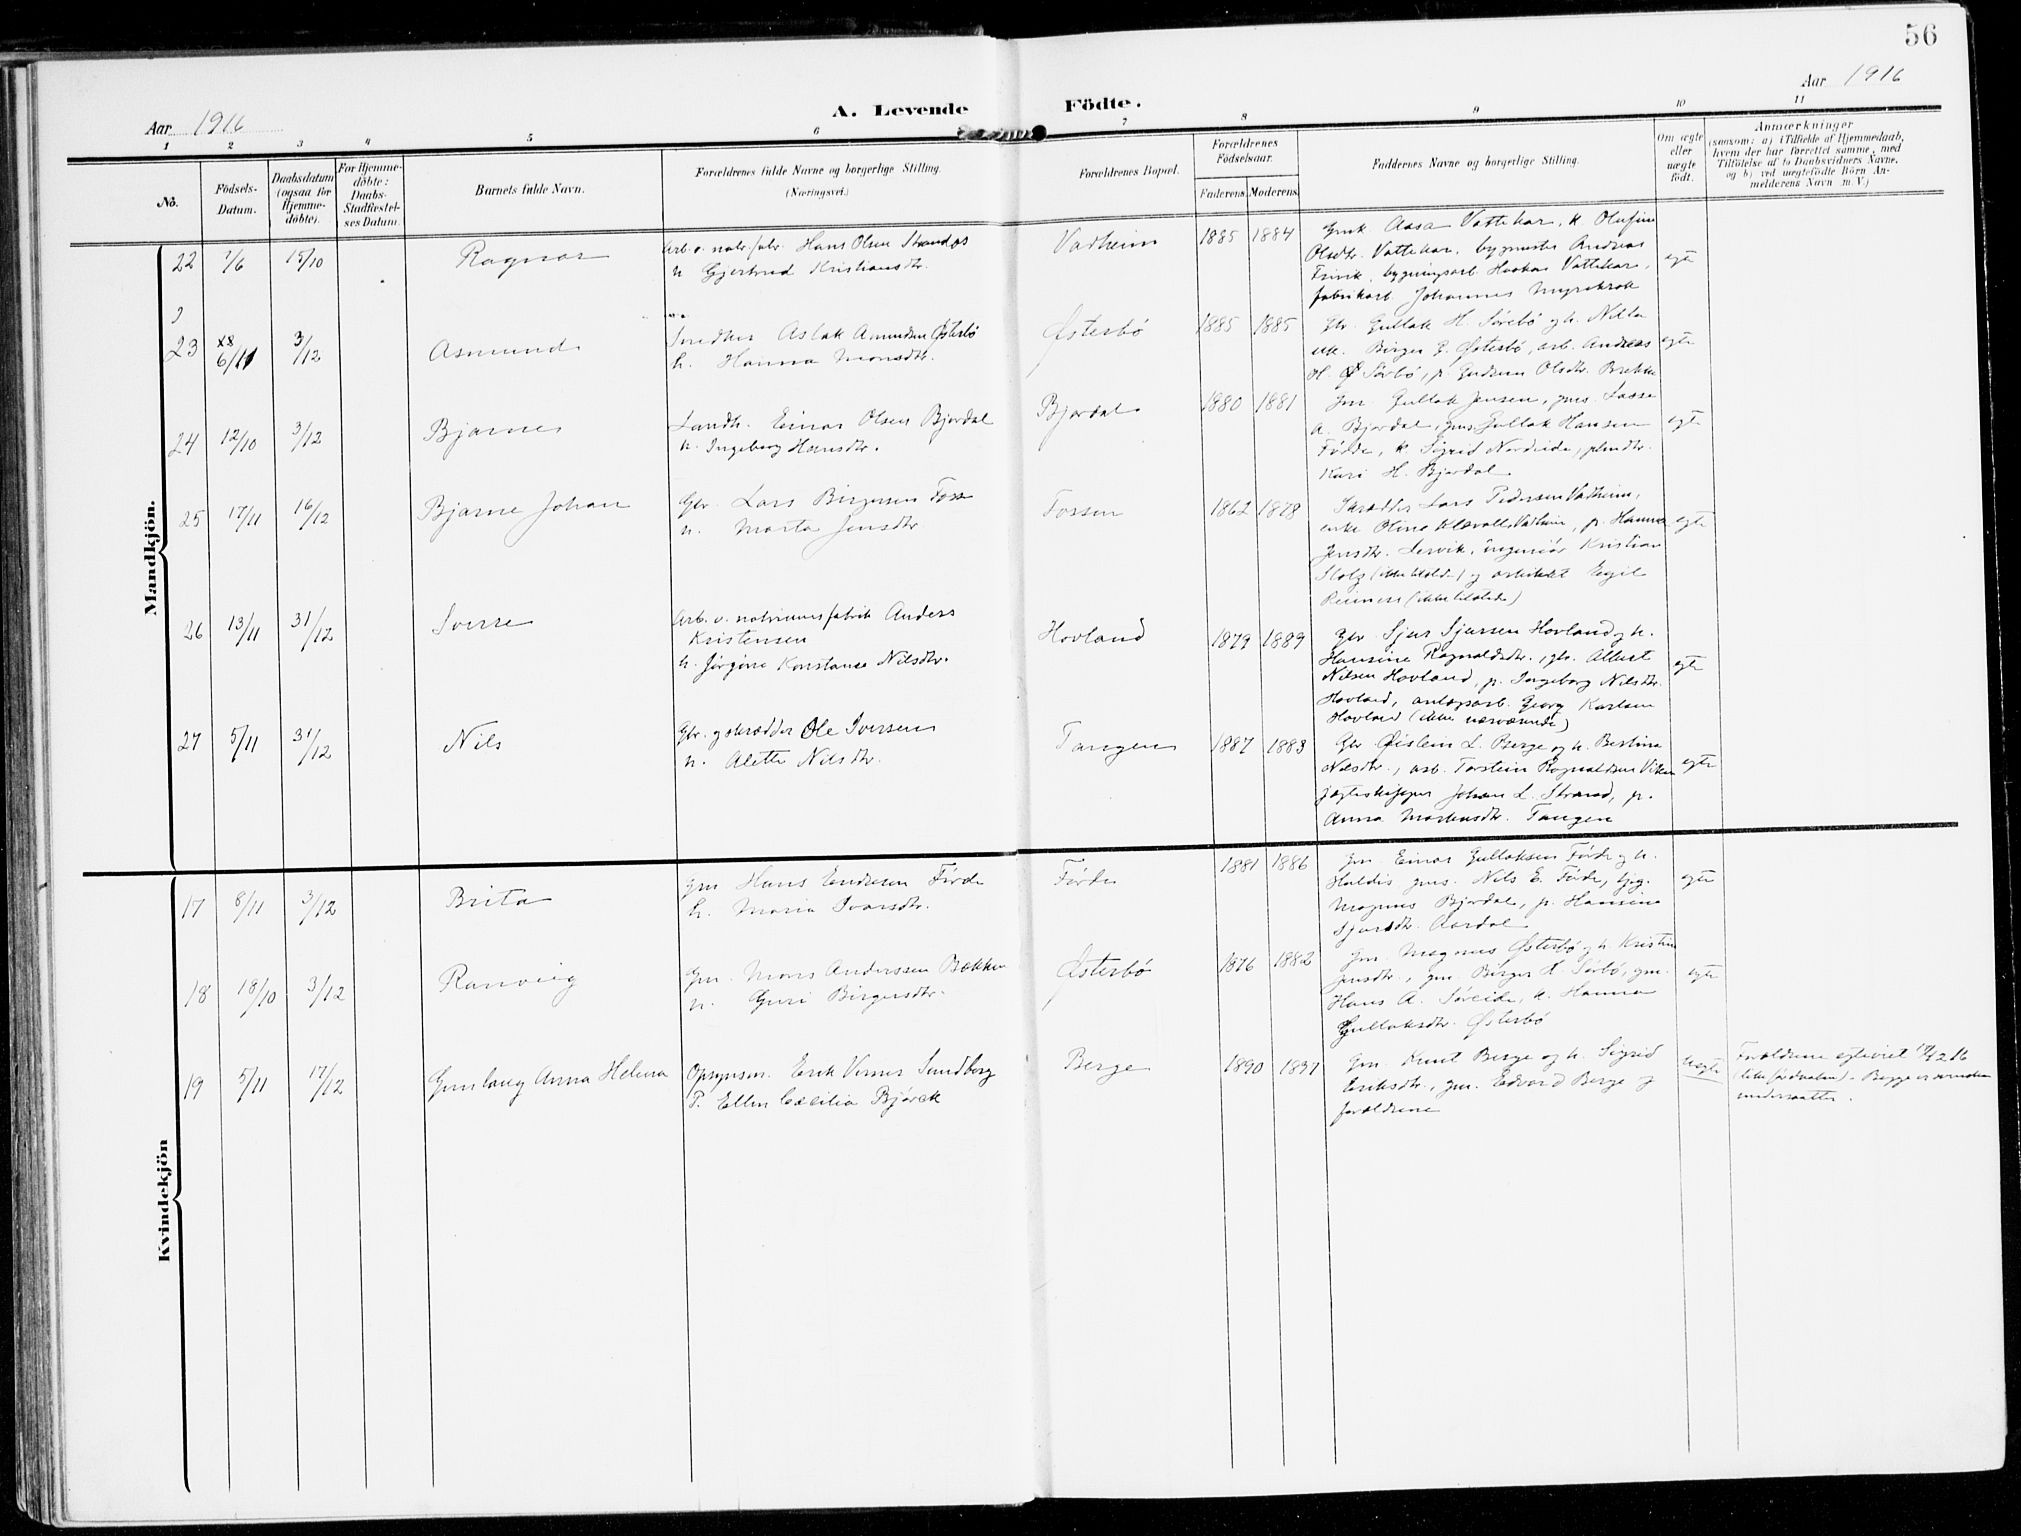 56
Aar 1916
A. Levende Födte.
Aar 1916
1 2 3 4 5 6 7 8 9 10 11
No.
Födsels-Datum.
Daabsdatum (ogsaa for Hjemme-döbte).
For Hjemme-döbte: Daabs-Stadfæstel-ses Datum.
Barnets fulde Navn.
Forældrenes fulde Navne og borgerlige Stilling.
(Næringsvei.)
Forældrenes Bopæl.
Forældrenes Födselsaar.
Faderens Moderens
Faddernes Navne og borgerlige Stilling.
Om ægte eller uægte födt.
Anmærkninger
(saasom: a) i Tilfælde af Hjemmedaab,
hvem der har forrettet samme, med
Tilföielse af to Daabsvidners Navne,
og b) ved uægtefödte Börn An-
melderens Navn m. V.)
Mandkjön.
22 7/6 15/10 Ragnar
Arb. v. natr. fabr. Hans Olsen Strandos
h. Gjertrud Kristiansdtr.
Vadheim 1885 1884
Gmk Aasa Vattekar, k. Olufine
Olsdtr. Vattekar, bygmester Andreas
Trivik, bygningsarb. Haakon Vattekar,
fabrikarb. Johannes Myrekrok
egte
23 6/11 3/12 Asmund
Snedker Aslak Amundsen Østerbö
h. Hanna Monsdtr.
Østerbö 1885 1885
Gbr. Gullak H. Sörebö og h. Nilla
Birger P. Østerbö, arb. Andreas
H. Sörbö, p. Gudrun Olsdtr. Brekke
egte
24 12/10 3/12 Bjarne
Landh. Einar Olsen Bjordal
h. Ingeborg Hansdtr.
Bjordal 1880 1881
Gm. Gullak Jensen, gms. Lasse
A. Bjordal, gms. Gullak Hansen
Förde, k. Sigrid Nordeide, plmdtr.
Kari H. Bjordal
egte
25 17/11 16/12 Bjarne Johan
Gbr. Lars Birgersen Fosse
h. Marta Jensdtr
Fossen 1862 1878
Skrædder Lars Pedersen Vadheim,
enke Oline Klævold Vadheim, p. Hanna
Jensdtr. Servik, ingeniör Kristian
Stolz (ikke tilstede) og arkitekt Egil
Reimers (ikke tilstede)
egte
26 13/11 31/12 Sverre
Arb. v. natriumsfabrik Anders
Kristensen
h. Jörgine Konstanse Nilsdtr.
Hovland 1879 1889
Gbr. Sjur Sjursen Hovland og h.
Hansine Ragnaldsdtr., gbr. Albert
Nilsen Hovland, p. Ingeborg Nilsdtr.
Hovland, anlægsarb. Georg Karlsen
Hovland (ikke nærværende)
egte
27 5/11 31/12 Nils
Gbr. og skrædder Ole Iversen
h. Alette Nilsdtr.
Tangen 1887 1883
Gbr Øistein L. Berge og h. Bertina
Nilsdtr., arb. Torstein Ragnaldsen Viken
jægteskipper Johan L. Strand, p.
Anna Martinsdtr. Tangen
egte
Kvindekjön
17 8/11 3/12 Brita
Gm Hans Endresen Förde
h. Maria Ivarsdtr.
Förde 1881 1886
Gm. Einar Gullaksen Förde og h.
Haldis gms. Nils E. Förde, tjg.
Magnus Bjordal, p. Hansina
Sjursdtr. Aardal
egte
18 18/10 3/12 Ranveig
Gm. Mons Anderssen Bækken
h. Guri Birgersdtr.
Østerbö 1876 1882
Gm. Magnus Østerbö og h. Kristine
Jensdtr., gm. Birger H. Sörbö, gm.
Hans A. Söreide, k. Hanna
Gullaksdtr. Østerbö
egte
19 5/11 17/12 Gunlaug Anna Helena
Opsynsm. Erik Verner Sundberg
P. Ellen Cæcilia Björck
Berge 1890 1891
Gm. Knut Berge og h. Sigrid
Eriksdtr., gm. Edvard Berge og
forældrene
Uegte
Forældrene egteviet 17/12 16
(ikke før dvalen). Begge er svenske
undersaatter.